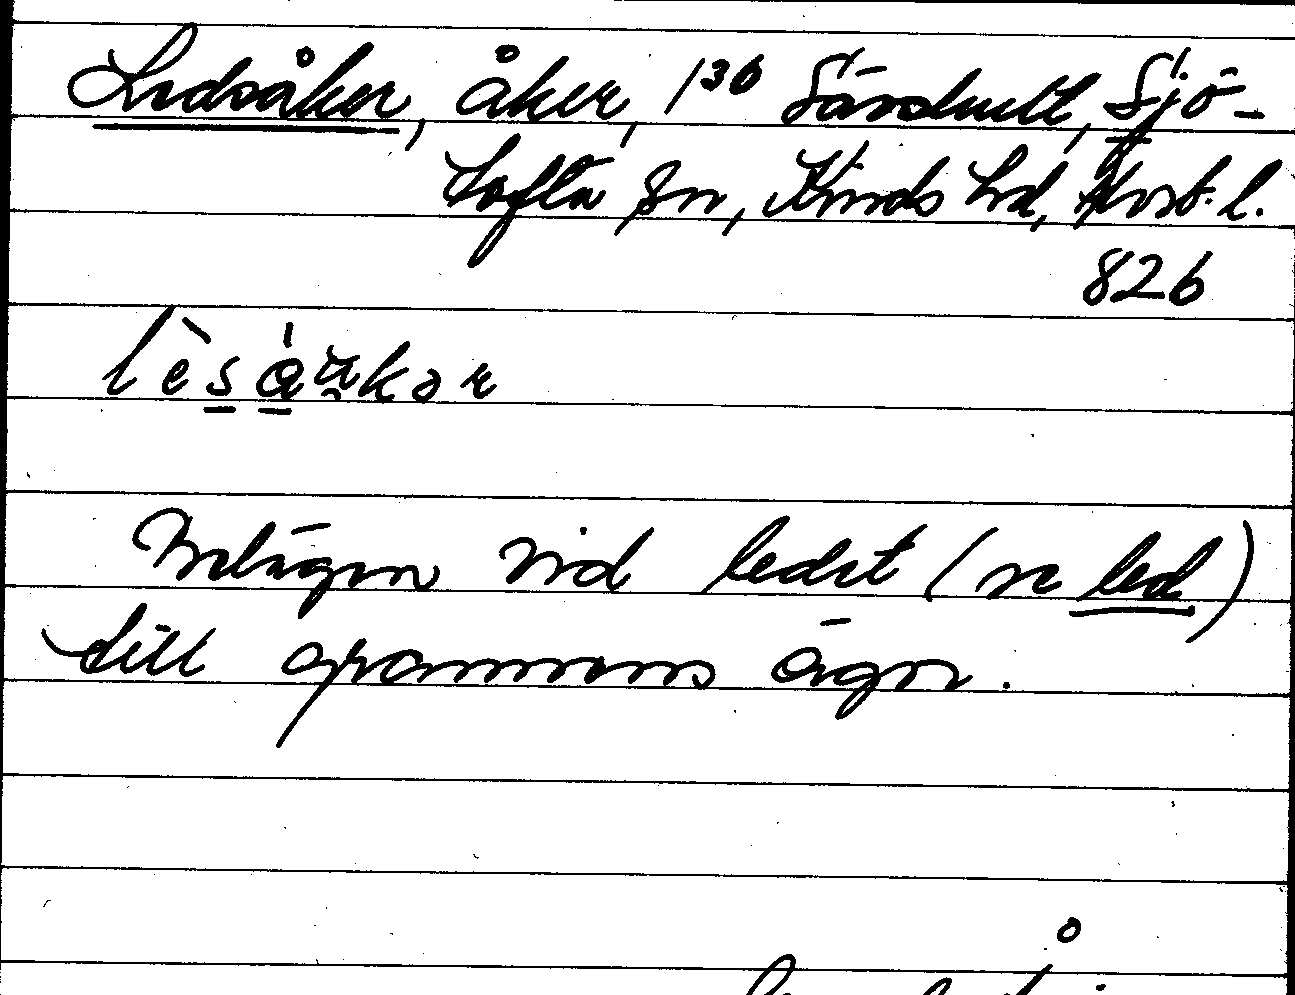 Ledsåker, åker, 1³⁶ Särshult, Sjö-
tofta sn, Kinds hd, Älvsb. l.
826
Belägen vid ledet (n led)
till grannens ägor.